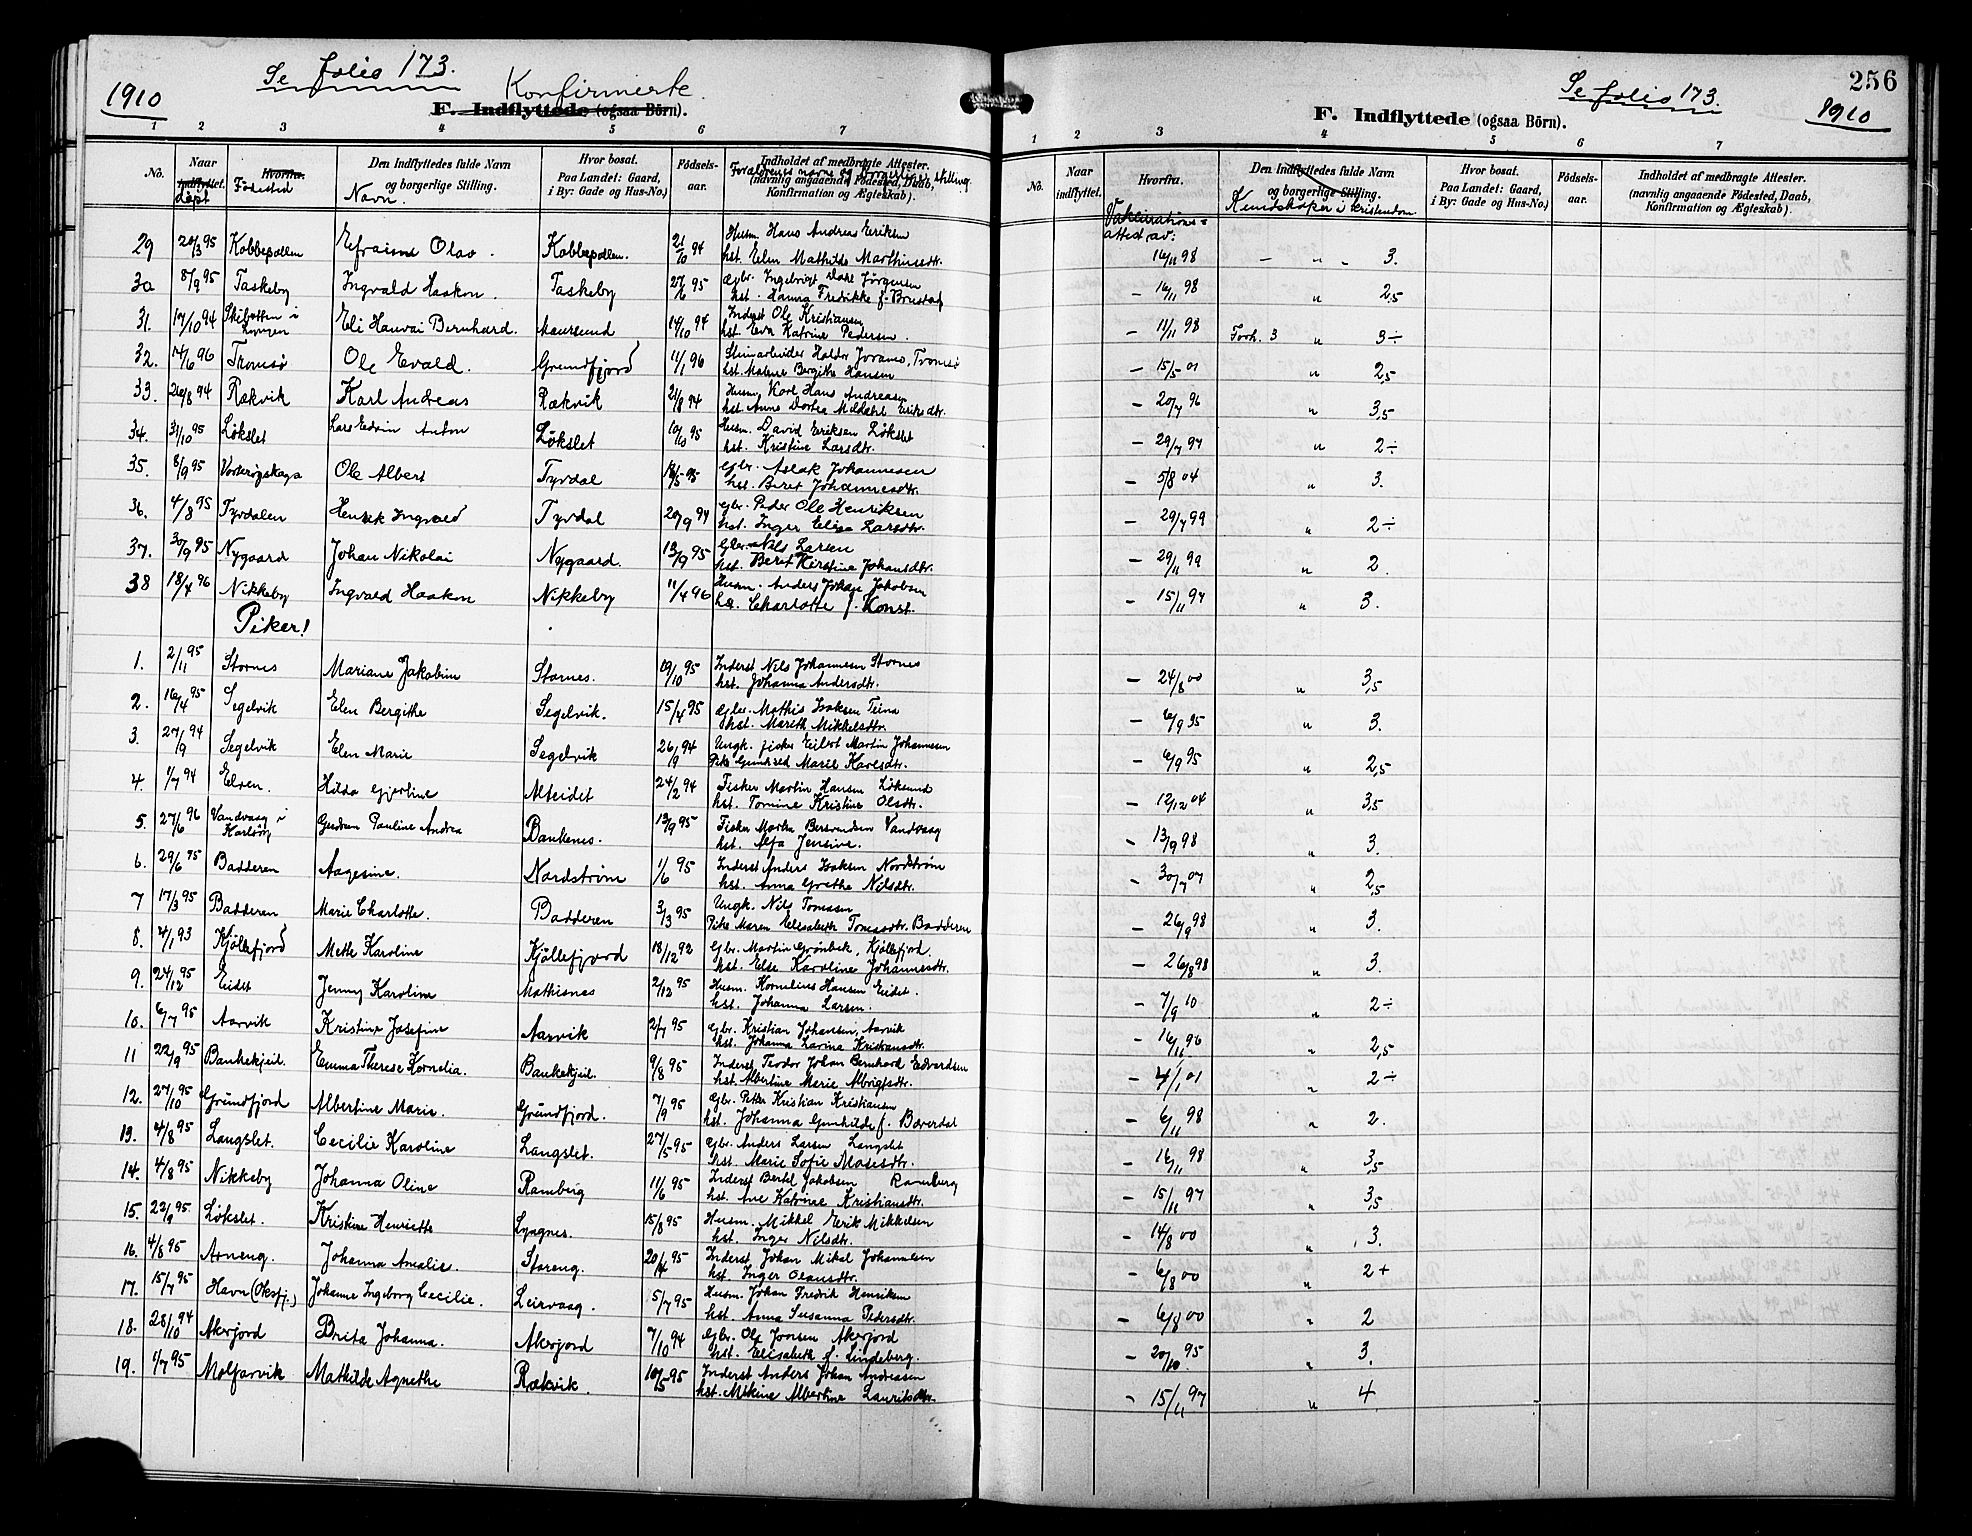 1910
Se folio 173.
Konfirmerte.
F. Indflyttede (ogsaa Börn).
1 2 3 4 5 6 7
No. Naar Indflyttet. döpt Hvorfra. Födested Den Indflyttedes fulde Navn og borgerlige Stilling. Navn. Hvor bosat. Paa Landet: Gaard, i By: Gade og Hus-No.) Födsels-aar. Indholdet af medbragte Attester. (navnlig angaaende Födested, Daab, Konfirmation og Ægteskab). Forældrenes navne og borgerlige stilling
29 20/3 95 Kobbepollen Efraim Olav. Kobbepollen. 21/10 94 Husm. Hans Andreas Eriksen
hst. Elen Mathilde Marthinsdtr.
30 8/9 95 Taskeby Ingvald Haakon. Taskeby 27/6 95 Gbr. Ingebrigt Dahl Jörgensen
hst. Hanna Fredrikke f. Brustad
31. 17/10 94 Skibotten i Lyngen Eli Hanvai Bernhard. Maursund 14/10 94 Inderst Ole Kristiansen
hst. Eva Katrine Pedersen.
32. 14/6 96 Tromsö Ole Evald. Grundfjord 11/1 96 Stenarbeider Halder Jorams, Tromsö
hst. Malene Bergithe Hansen
33. 26/8 94 Rækvik Karl Andreas Rækvik 21/8 94 Husm. Karl Hans Andreasen
hst. Anne Dortea Mildahl Eriksdtr.
34. 31/10 95 Løkslet Lars Edvin Anton Løkslet 10/10 95 Husm. David Eriksen Løkslet
hst. Kristine Larsdtr.
35. 8/9 95 Vorterøyskaga Ole Albert Tyvdal 18/5 95 Gbr. Aslak Johannesen
hst. Beret Johannesdtr.
36. 4/8 95 Tyvdalen Henrik Ingvald Tyvdal 20/9 94 Gbr. Peder Ole Henriksen
hst. Inger Elisa Larsdtr.
37. 30/9 95 Nygaard Johan Nikolai Nygaard. 13/9 95 Gbr. Nils Larsen
hst. Beret Kirstine Johansdtr.
38 18/4 96 Nikkeby Ingvald Haakon Nikkeby 11/4 96 Husm. Anders Johan Jakobsen
hst. Charlotte f. Konst.
Piker!
1. 2/11 95 Stornes Mariane Jakobine Stornes. 09/10 95 Inderst Nils Johannesen Stornes
hst. Johanna Andersdtr.
2. 16/4 95 Segelvik Elen Bergithe Segelvik. 15/4 95 Gbr. Mathis Isaksen Teina
hst. Mareth Mikkelsdtr.
3. 27/9 94 Segelvik Elen Marie Segelvik 26/9 94 Ungk. fisker Eilert Martin Johannesen
Pike Gunhild Marie Karlsdtr.
4. 1/7 94 Elven. Hilda Gjertine Alteidet 24/2 94 Fisker Martin Hansen Løksund
hst. Tomine Kristine Olsdtr.
5. 27/6 96 Vandvaag i Karlsöy Gudrun Pauline Andrea Bankenes. 13/9 95 Fisker Martin Berntsen Vandvaag
hst. Alfa Jensine.
6. 29/6 95 Badderen Aagesine. Nordstrøm 1/6 95 Inderst Anders Isaksen Nordstrøm
hst. Anna Grethe Nilsdtr.
7 17/3 95 Badderen Marie Charlotte. Badderen 3/3 95 Ungk. Nils Tomasen
Pike Maren Elisabeth Tomasdtr. Badderen
8. 4/1 93 Kjöllefjord Mette Karoline Kjöllefjord 18/12 92 Gbr. Martin Grönbek, Kjöllefjord.
hst. Else Karoline Johannesdtr.
9. 24/12 95 Eidet Jenny Karoline Mathisnes 2/12 95 Husm. Kornelius Hansen Eidet.
hst. Johanna Larsen.
10. 6/7 95 Aarvik Kristine Josefine Aarvik 2/7 95 Gbr. Kristian Johansen, Aarvik
hst. Johanna Larina Kristiansdtr.
11 22/9 95 Bankekjeil. Emma Therese Kornelia. Bankekjeil. 9/8 95 Inderst Teodor Johan Bernhard Edvardsen
hst. Albertine Marie Albrigtsdtr.
12. 27/10 95 Grundfjord Albertine Marie. Grundfjord. 7/9 95 Gbr. Peter Kristian Kristiansen
hst. Johanna Gunhilde f. Bæverdal
13. 4/8 95 Langslet. Cecilie Karoline Langslet. 27/5 95 Gbr. Anders Larsen Langslet
hst. Marie Sofie Mosesdtr.
14. 4/8 95 Nikkeby Johanna Oline Ramberg 11/6 95 Inderst Bertel Jakobsen Ramberg
hst. Ane Katrine Kristiansdtr.
15. 22/9 95. Løkslet. Kristine Henriette Lyngnes. 15/8 95 Husm. Mikkel Erik Mikkelsen
hst. Inger Nilsdtr.
16. 4/8 95 Arneng. Johanna Amalie. Storeng. 20/4 95 Inderst Johan Mikal Johannesen
hst. Inger Olausdtr.
17. 15/7 95 Havn (Oksfj.) Johanne Ingeborg Cecilie. Leirvaag. 5/7 95 Husm. Johan Fredrik Henriksen
hst. Anna Susanna Pedersdtr.
18. 28/10 94 Akerjord Brita Johanna. Akerjord 7/10 94 Gbr. Ole Jonsen Akerjord
hst. Elisabeth f. Lindeberg.
19. 4/7 95 Molfarvik Mathilde Agnethe Rækvik. 10/5 95 Inderst Anders Johan Andreasen
hst. Mikine Albertine Lauritsdtr.
Se folio 173.
256
1910
F. Indflyttede (ogsaa Börn).
1 2 3 4 5 6 7
No. Naar indflyttet. Hvorfra. Den Indflyttedes fulde Navn og borgerlige Stilling. Hvor bosat. Paa Landet: Gaard, i By: Gade og Hus-No.) Födsels-aar. Indholdet af medbragte Attester. (navnlig angaaende Födested, Daab, Konfirmation og Ægteskab).
Vakcinations-attest av: Kundskaper i kristendom
16/11 98 – " – 3.
– 16/11 98 " 2,5
– 11/11 98 Forh. 3 " 3÷
– 15/5 01 " 2,5
– 20/7 96 " 3,5
– 29/7 97 " 2÷
– 5/8 04 " 3.
– 29/7 99 " 2÷
– 29/11 99 " 2.
– 15/11 97 " 3.
– 24/8 00 " 3,5
– 6/9 95 " 3.
– 6/9 95 " 2,5
– 12/12 04 " 3,5
– 13/9 98 " 3.
– 30/7 07 " 2,5
– 26/9 98 " 3.
– 26/8 98 " 3.
– 7/9 10 " 2÷
– 16/11 96 " 2,5
– 4/1 01 " 2÷
– 6/11 98 " 2.
– 16/11 98 " 3,5
– 15/11 97 " 3,5
– 14/8 00 " 3.
– 6/8 00 " 2+
– 6/8 00 " 2
– 20/10 95 " 3.
– 15/11 97 " 4